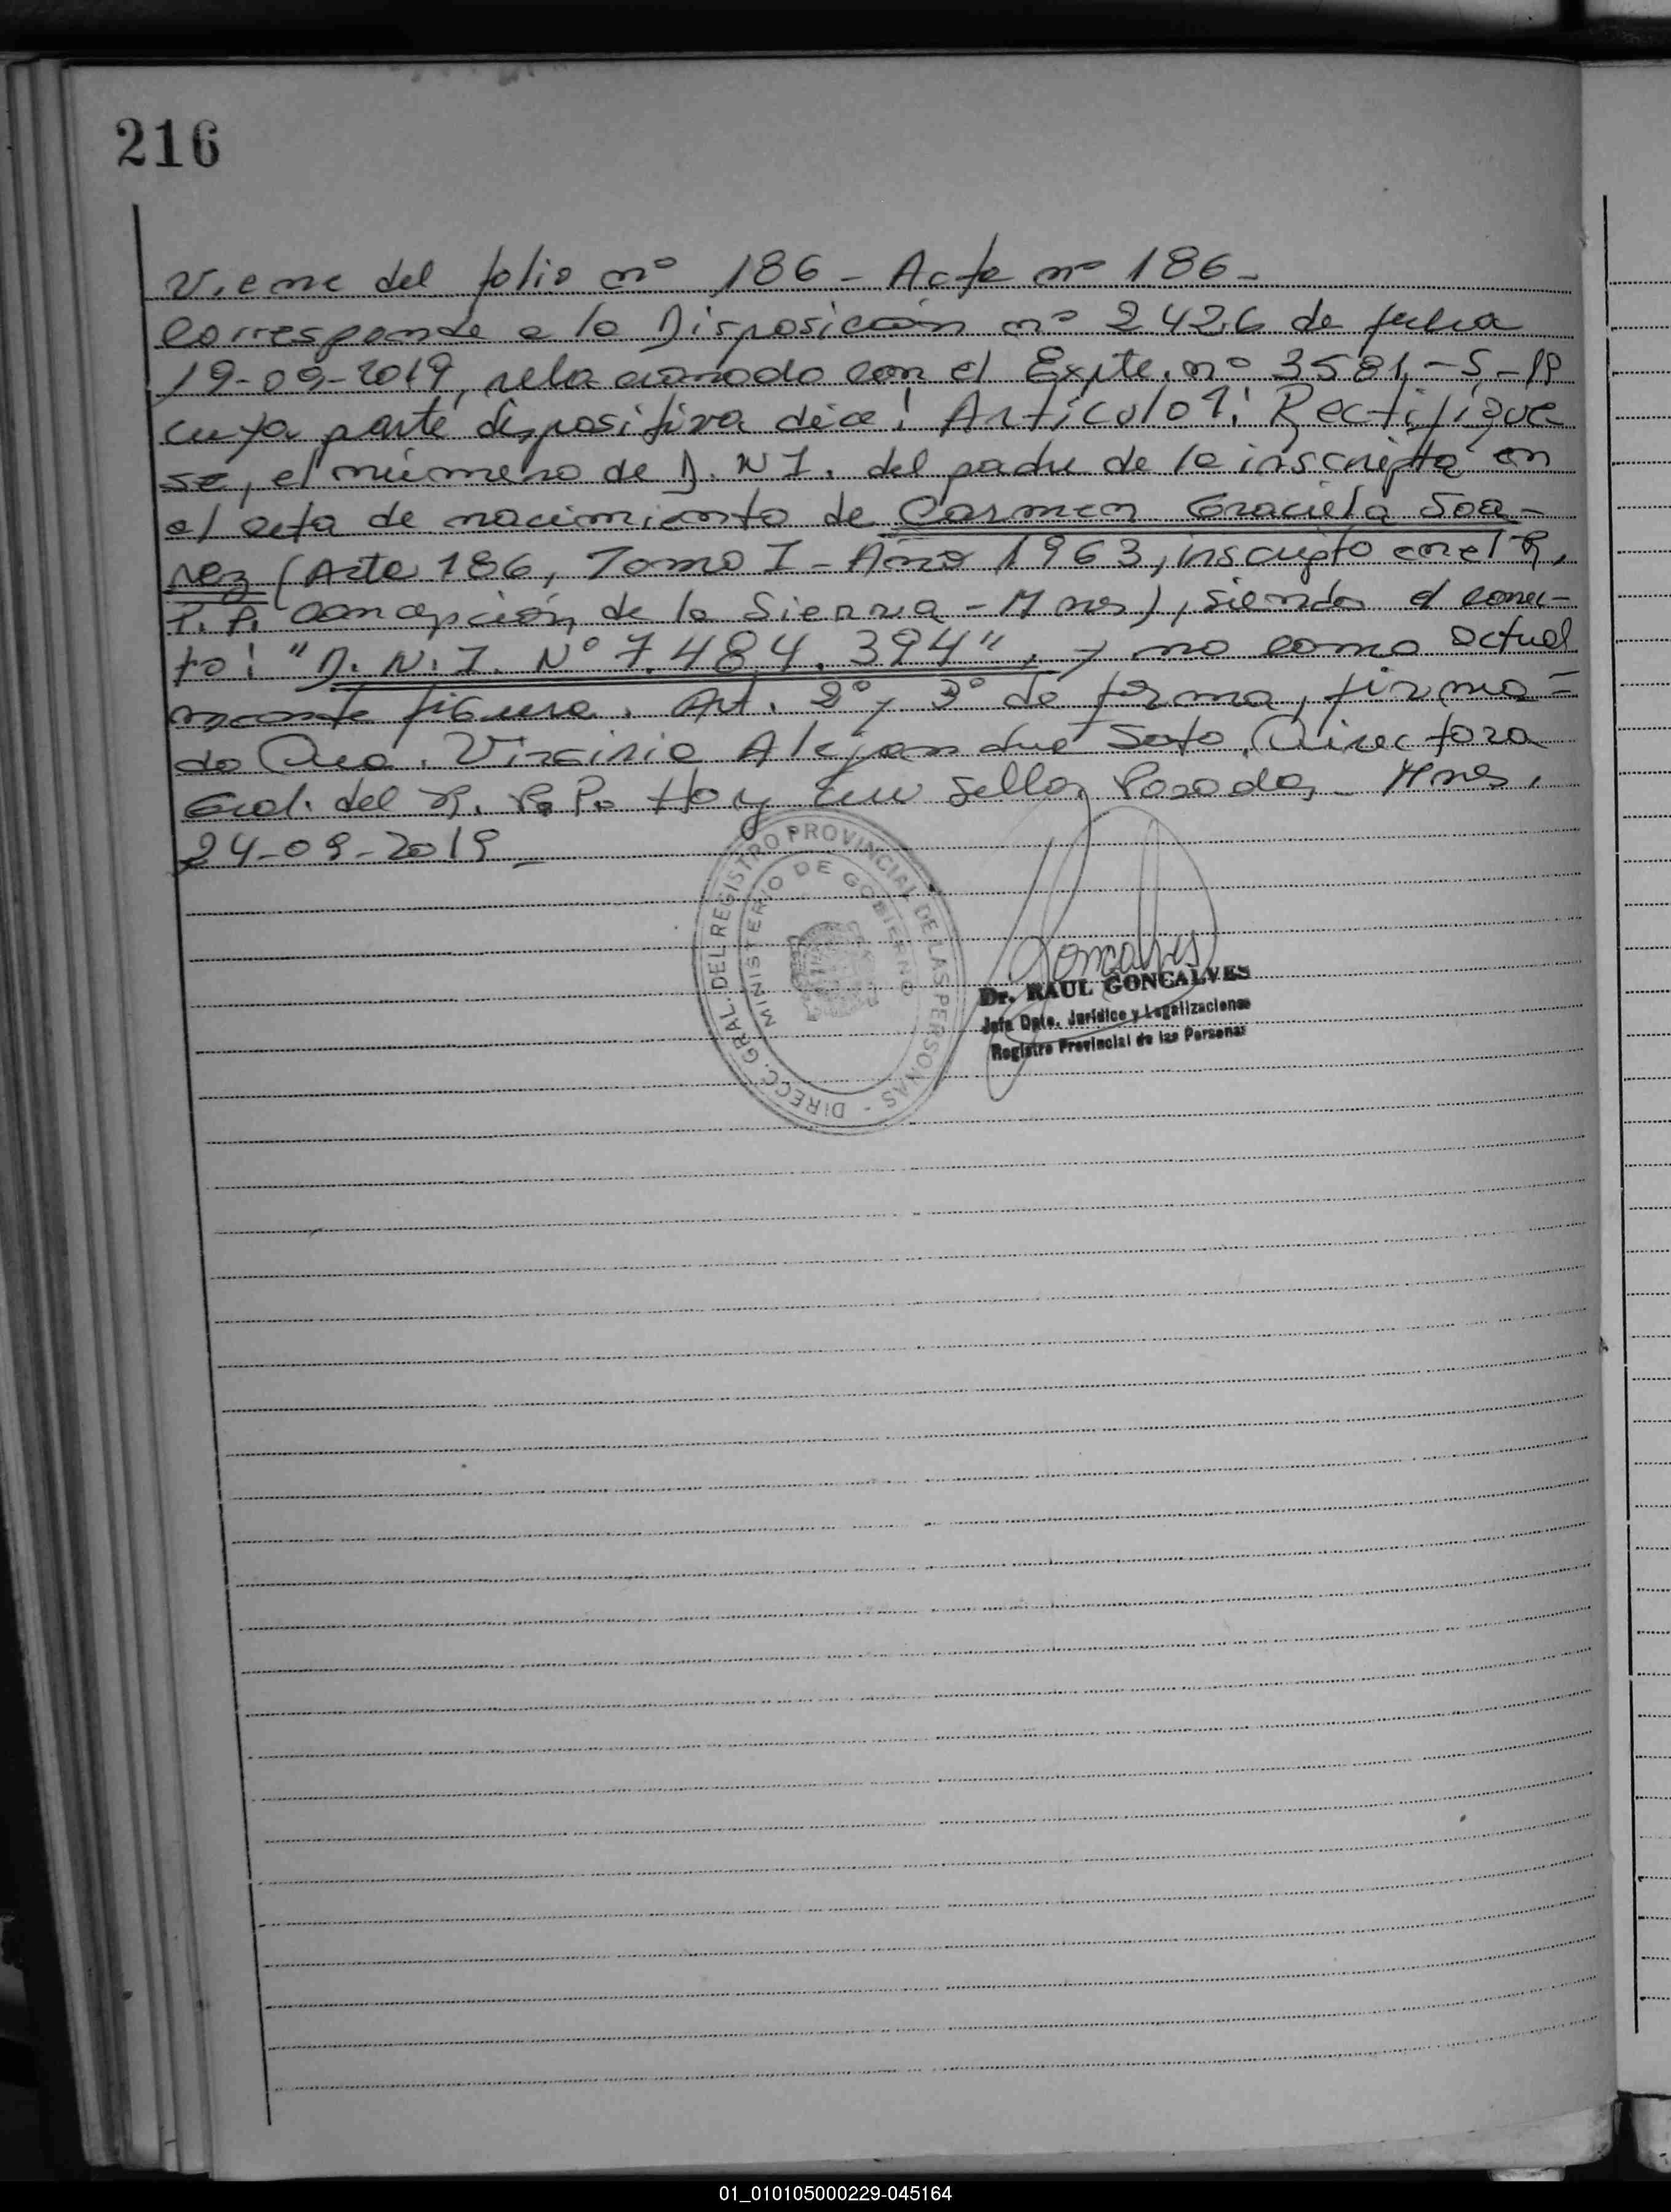 216
Viene del folio nº 186 - Acta nº 186 -
Corresponde a la Disposición nº 2426 de fecha
19-09-2019, relacionado con el Expte. nº 3581-S-19
cuya parte dispositiva dice: Artículo 1º: Rectifíque
se, el número de D.N.I. del padre de la inscripta en
el acta de nacimiento de Carmen Graciela Soa-
rez (Acta 186, Tomo I - Año 1963, inscripto en el R.
P.P. Concepción de la Sierra - Mnes), siendo el correc-
to: "D.N.I. Nº 7.484.394", y no como actual
mente figura. Art. 2º y 3º de forma, firma=
do Dra. Virginia Alejandra Soto, Directora
Gral. del R.P.P. Hay un sello, Posadas - Mnes.
24-09-2019 -
DIRECC. GRAL. DEL REGISTRO PROVINCIAL DE LAS PERSONAS -
MINISTERIO DE GOBIERNO
Goncalves
Dr. RAUL GONCALVES
Jefe Dpto. Jurídico y Legalizaciones
Registro Provincial de las Personas
01_010105000229-045164